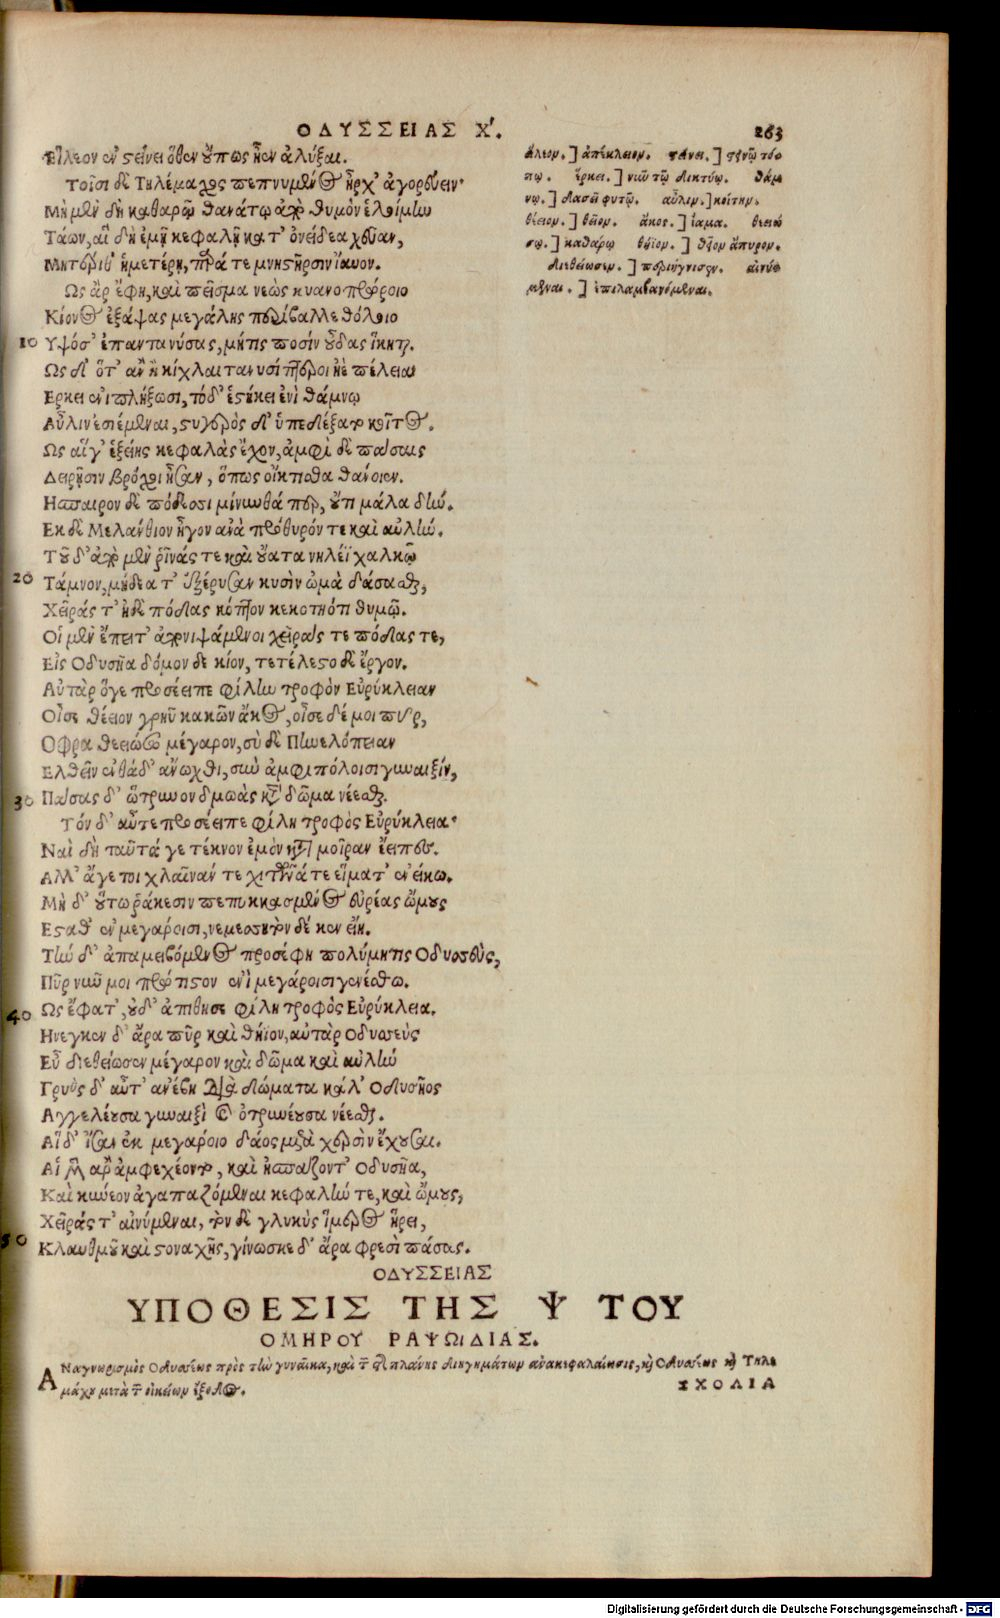 ΟΔΥΣΣΕΙΑΣ Χ.
263
Εἴλεον ἐν στείνει ὅθεν οὔπως ἦεν ἀλύξαι.
Τοῖσι δὲ Τηλέμαχος πεπνυμένος ἦρχ' ἀγορεύειν·
Μὴ μὲν δὴ καθαρῷ θανάτῳ ἀπὸ θυμὸν ἑλοίμην
Τάων, αἳ δὴ ἐμῇ κεφαλῇ κατ' ὀνείδεα χεῦαν,
Μητέρι θ' ἡμετέρῃ, παρά τε μνηστῆρσιν ἴαυον.
Ὣς ἄρ ἔφη, καὶ πεῖσμα νεὼς κυανοπρώροιο
Κίονος ἐξάψας μεγάλης περίβαλλε θόλοιο
10 Υψόσ' ἐπαντανύσας, μήτις ποσὶν οὖδας ἵκηται.
Ὡς δ' ὅτ' ἂν ἢ κίχλαι τανυσίπτεροι ἠὲ πέλειαι
Ερκει ἐνιπλήξωσι, τόδ' ἑστήκει ἐνὶ θάμνῳ
Αὖλιν ἐσιέμεναι, στυγερὸς δ' ὑπεδέξατο κοῖτος.
Ὡς αἵγ' ἑξείης κεφαλὰς ἔχον, ἀμφὶ δὲ πάσαις
Δειρῇσιν βρόχοι ἦσαν, ὅπως οἴκτιστα θάνοιεν.
Ησπαιρον δὲ πόδεσσι μίνυνθά περ, οὔτι μάλα δήν.
Εκ δὲ Μελάνθιον ἦγον ἀνὰ πρόθυρόν τε καὶ αὐλήν.
Τοῦ δ' ἀπὸ μὲν ῥῖνάς τε καὶ οὔατα νηλέϊ χαλκῷ
20 Τάμνον, μήδεα τ' ἐξέρυσαν κυσὶν ὠμὰ δάσασθαι,
Χεῖράς τ' ἠδὲ πόδας κόπτον κεκοτηότι θυμῷ.
Οἱ μὲν ἔπειτ' ἀπονιψάμενοι χεῖράς τε πόδας τε,
Εἰς Οδυσῆα δόμον δε κίον, τετέλεστο δὲ ἔργον.
Αὐτὰρ ὅγε προσέειπε φίλην τροφὸν Εὐρύκλειαν
Οἶσε θέειον γρηῢ κακῶν ἄκος, οἶσε δέ μοι πῦρ,
Οφρα θεειώσω μέγαρον, σὺ δὲ Πηνελόπειαν
Ελθεῖν ἐνθάδ' ἄνωχθι, σὺν ἀμφιπόλοισι γυναιξίν,
30 Πάσας δ' ὤτρυνον δμωὰς κατὰ δῶμα νέεσθαι.
Τόν δ' αὖτε προσέειπε φίλη τροφὸς Εὐρύκλεια·
Ναὶ δὴ ταῦτά γε τέκνον ἐμὸν κατὰ μοῖραν ἔειπες.
Αλλ' ἄγε τοι χλαῖνάν τε χιτῶνά τε εἵματ' ἐνείκω.
Μὴ δ' οὕτω ῥάκεσιν πεπυκασμένος εὐρέας ὤμους
Εσταθ' ἐν μεγάροισι, νεμεσσητὸν δέ κεν εἴη.
Τὴν δ' ἀπαμειβόμενος προσέφη πολύμητις Οδυσσεὺς,
Πῦρ νῦν μοι πρώτιστον ἐνὶ μεγάροισι γενέσθω.
40 Ὡς ἔφατ', οὐδ' ἀπίθησε φίλη τροφὸς Εὐρύκλεια.
Ηνεγκεν δ' ἄρα πῦρ καὶ θήϊον, αὐτὰρ Οδυσσεὺς
Εὖ διεθείωσεν μέγαρον καὶ δῶμα καὶ αὐλήν
Γρηῢς δ' αὖτ' ἀνέβη διὰ δώματα κάλ' Οδυσῆος
Αγγελέουσα γυναιξὶ καὶ ὀτρυνέουσα νέεσθαι.
Αἱ δ' ἴσαν ἐκ μεγάροιο δάος μετὰ χερσὶν ἔχουσαι.
Αἱ μὲν ἄρ' ἀμφεχέοντο, καὶ ἠσπάζοντ' Οδυσῆα,
Καὶ κύνεον ἀγαπαζόμεναι κεφαλήν τε, καὶ ὤμους,
Χεῖράς τ' αἰνύμεναι, τὸν δὲ γλυκὺς ἵμερος ᾕρει,
50 Κλαυθμοῦ καὶ στοναχῆς, γίνωσκε δ' ἄρα φρεσὶ πάσας.
ἄλεον.] ἀπέκλειον. στείνει.] στενῷ τόπῳ.
ἕρκει.] νῦν τῷ δικτύῳ. θάμνῳ.] δασεῖ φυτῷ. αὖλιν.] κοίτην.
θέειον.] θεῖον. ἄκος.] ἴαμα. θεειώσω.] καθάρω θήϊον.] θεῖον ἄπυρον.
διεθείωσεν.] περιήγνισεν. αἰνύμεναι.] ἐπιλαμβανόμεναι.
ΟΔΥΣΣΕΙΑΣ
ΥΠΟΘΕΣΙΣ ΤΗΣ Ψ ΤΟΥ
ΟΜΗΡΟΥ ΡΑΨΩΙΔΙΑΣ.
ΑΝαγνωρισμὸς Οδυσσέως πρὸς τὴν γυναῖκα, καὶ τῶν τῆς πλάνης διηγημάτων ἀνακεφαλαίωσις, καὶ Οδυσσέως καὶ Τηλεμάχου μετὰ τῶν οἰκείων ἔξοδος.
ΣΧΟΛΙΑ
Digitalisierung gefördert durch die Deutsche Forschungsgemeinschaft - DFG